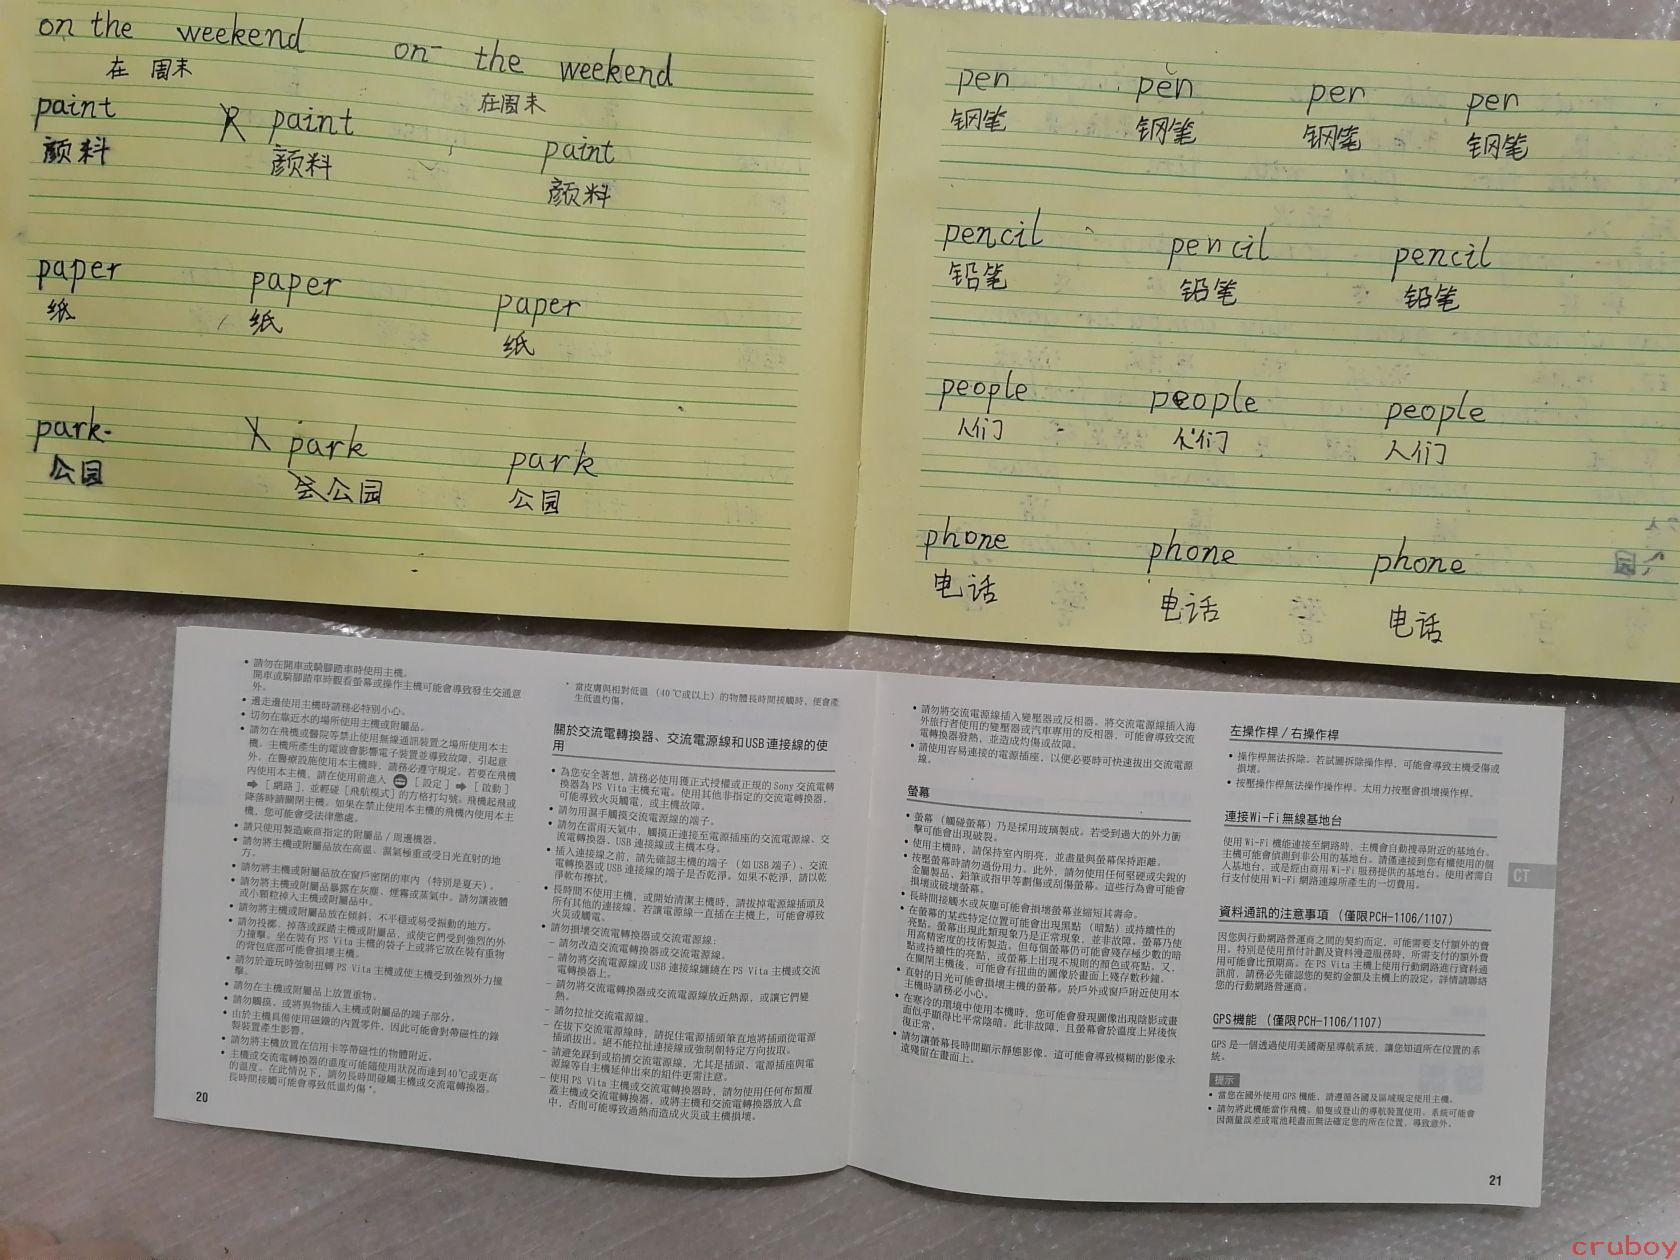 on the weekend on the weekend
在 周末 在周末
paint paint paint
颜料 颜料 颜料
paper paper paper
纸 纸 纸
park park park
公园 公园 公园
pen pen pen pen
钢笔 钢笔 钢笔 钢笔
pencil pencil pencil
铅笔 铅笔 铅笔
people people people
人们 人们 人们
phone phone phone
电话 电话 电话
• 請勿在開車或騎腳踏車時使用主機。
開車或騎腳踏車時觀看螢幕或操作主機可能會導致發生交通意
外。
• 邊走邊使用主機時請務必特別小心。
• 切勿在靠近水的場所使用主機或附屬品。
• 請勿在飛機或醫院等禁止使用無線通訊裝置之場所使用本主
機。主機所產生的電波會影響電子裝置並導致故障，引起意
外。在醫療設施使用本主機時，請務必遵守規定。若要在飛機
內使用本主機，請在使用前進入 [設定] ➡ [啟動]
➡ [網路]，並輕碰 [飛航模式] 的方格打勾號。飛機起飛或
降落時請關閉主機。如果在禁止使用本主機的飛機內使用本主
機，您可能會受法律懲處。
• 請只使用製造廠商指定的附屬品/周邊機器。
• 請勿將主機或附屬品放在高溫、濕氣極重或受日光直射的地
方。
• 請勿將主機或附屬品放在窗戶密閉的車內 (特別是夏天)。
• 請勿將主機或附屬品暴露在灰塵、煙霧或蒸氣中。請勿讓液體
或小顆粒掉入主機或附屬品中。
• 請勿將主機或附屬品放在傾斜、不平穩或易受振動的地方。
• 請勿投擲、掉落或踩踏主機或附屬品，或使它們受到強烈的外
力撞擊。坐在裝有 PS Vita 主機的袋子上或將它放在裝有重物
的背包底部可能會損壞主機。
• 請勿於遊玩時強制扭轉 PS Vita 主機或使主機受到強烈外力撞
擊。
• 請勿在主機或附屬品上放置重物。
• 請勿觸摸、或將異物插入主機或附屬品的端子部分。
• 由於主機具備使用磁鐵的內置零件，因此可能會對帶磁性的錄
製裝置產生影響。
請勿將主機放置在信用卡等帶磁性的物體附近。
• 主機或交流電轉換器的溫度可能隨使用狀況而達到40℃或更高
的溫度。在此情況下，請勿長時間碰觸主機或交流電轉換器。
長時間接觸可能會導致低溫灼傷*。
20
* 當皮膚與相對低溫 (40℃或以上) 的物體長時間接觸時，便會產
生低溫灼傷。
關於交流電轉換器、交流電源線和USB連接線的使
用
• 為您安全著想，請務必使用獲正式授權或正規的 Sony 交流電
轉換器為 PS Vita 主機充電。使用其他非指定的交流電轉換器，
可能導致火災觸電，或主機故障。
• 請勿用濕手觸摸交流電源線的端子。
• 請勿在雷雨天氣中，觸摸正連接至電源插座的交流電源線、交
流電轉換器、USB 連接線或主機本身。
• 插入連接線之前，請先確認主機的端子 (如 USB 端子)、交流
電轉換器或 USB 連接線的端子是否乾淨。如果不乾淨，請以乾
淨軟布擦拭。
• 長時間不使用主機，或開始清潔主機時，請拔掉電源線插頭及
所有其他的連接線。若讓電源線一直插在主機上，可能會導致
火災或觸電。
• 請勿損壞交流電轉換器或交流電源線：
– 請勿改造交流電轉換器或交流電源線。
– 請勿將交流電源線或 USB 連接線纏繞在 PS Vita 主機或交流
電轉換器上。
– 請勿將交流電轉換器或交流電源線放近熱源，或讓它們變
熱。
– 請勿拉扯交流電源線。
– 在拔下交流電源線時，請捉住電源插頭筆直地將插頭從電源
插頭拔出。絕不能拉扯連接線或強制朝特定方向拔取。
– 請避免踩到或掐擠交流電源線，尤其是插頭、電源插座與電
源線等自主機延伸出來的組件更需注意。
– 使用 PS Vita 主機或交流電轉換器時，請勿使用任何布類覆
蓋主機或交流電轉換器，或將主機和交流電轉換器放入盒
中，否則可能導致過熱而造成火災或主機損壞。
• 請勿將交流電源線插入變壓器或反相器。將交流電源線插入海
外旅行者使用的變壓器或汽車專用的反相器，可能會導致交流
電轉換器發熱，並造成灼傷或故障。
• 請使用容易連接的電源插座，以便必要時可快速拔出交流電源
線。
螢幕
• 螢幕 (觸碰螢幕) 乃是採用玻璃製成。若受到過大的外力衝
擊可能會出現破裂。
• 使用主機時，請保持室內明亮，並盡量與螢幕保持距離。
• 按壓螢幕時請勿過份用力。此外，請勿使用任何堅硬或尖銳的
金屬製品、鉛筆或指甲等劃傷或刮傷螢幕。這些行為會可能會
損壞或破壞螢幕。
• 長時間接觸水或灰塵可能會損壞螢幕並縮短其壽命。
• 在螢幕的某些特定位置可能會出現黑點 (暗點) 或持續性的
亮點。螢幕出現此類現象乃是正常現象，並非故障。螢幕乃使
用高精密度的技術製造，但每個螢幕仍可能會殘存極少數的暗
點或持續性的亮點，或螢幕上出現不規則的顏色或亮點。又，
在關閉主機後，可能會有扭曲的圖像於畫面上殘存數秒鐘。
• 直射的日光可能會損壞主機的螢幕。於戶外或窗戶附近使用本
主機時請務必小心。
• 在寒冷的環境中使用本機時，您可能會發現圖像出現陰影或畫
面似乎顯得比平常陰暗。此非故障，且螢幕會於溫度上昇後恢
復正常，
• 請勿讓螢幕長時間顯示靜態影像。這可能會導致模糊的影像永
遠殘留在畫面上。
左操作桿/右操作桿
• 操作桿無法拆除。若試圖拆除操作桿，可能會導致主機受傷或
損壞。
• 按壓操作桿無法操作操作桿。太用力按壓會損壞操作桿。
連接Wi-Fi無線基地台
使用 Wi-Fi 機能連接至網路時，主機會自動搜尋附近的基地台。
主機可能會偵測到非公用的基地台。請僅連接到您有權使用的個
人基地台，或是經由商用 Wi-Fi 服務提供的基地台。使用者需自
行支付使用 Wi-Fi 網路連線所產生的一切費用。
CT
資料通訊的注意事項 (僅限PCH-1106/1107)
因您與行動網路營運商之間的契約而定，可能需要支付額外的費
用。特別是使用預付計劃及資料漫遊服務時，所需支付的額外費
用可能會比預期高。在 PS Vita 主機上使用行動網路進行資料通
訊前，請務必先確認您的契約金額及主機上的設定。詳情請聯絡
您的行動網路營運商。
GPS機能 (僅限PCH-1106/1107)
GPS 是一個透過使用美國衛星導航系統，讓您知道所在位置的系
統。
提示
• 當您在國外使用 GPS 機能，請遵循各國及區域規定使用主機。
• 請勿將此機能當作飛機、船隻或登山的導航裝置使用。系統可能會
因測量誤差或電池耗盡而無法確定您的所在位置，導致意外。
21
cruboy